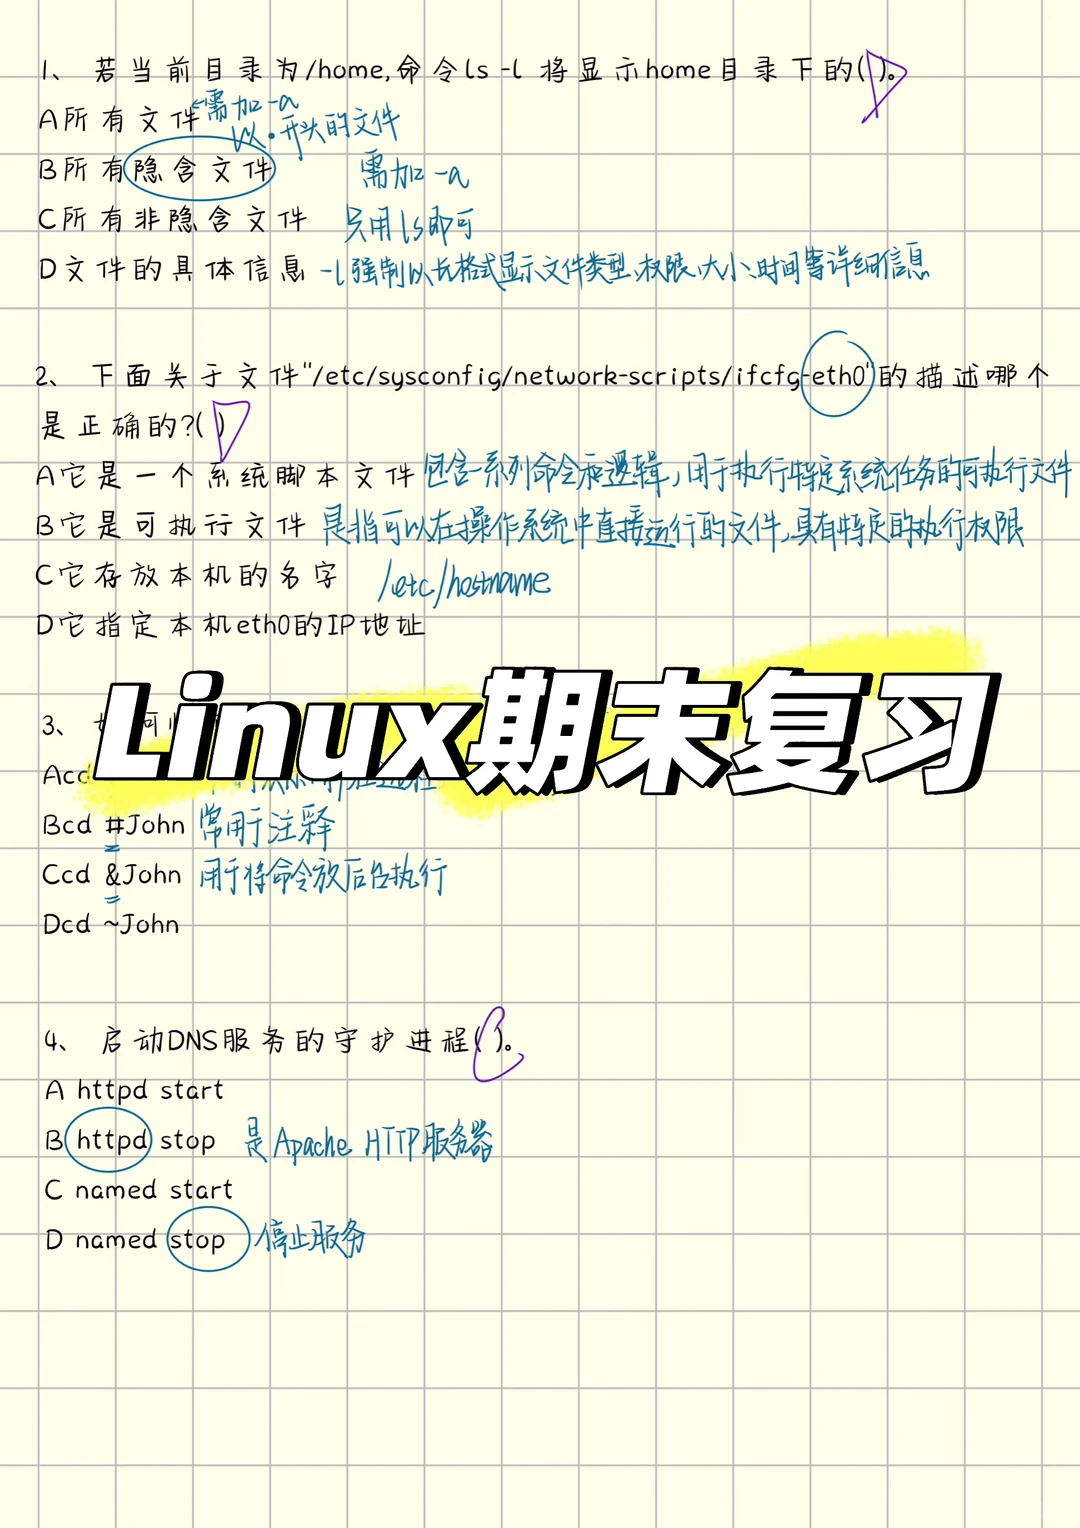 1、若当前目录为/home,命令ls -l 将显示home目录下的(D)。
A所有文件 ←需加-a
以·开头的文件
B所有隐含文件 需加-a
C所有非隐含文件 只用ls即可
D文件的具体信息 -l强制以长格式显示文件类型、权限、大小、时间等详细信息
2、下面关于文件"/etc/sysconfig/network-scripts/ifcfg-eth0"的描述哪个
是正确的?(D)
A它是一个系统脚本文件 包含一系列命令和逻辑,用于执行特定系统任务的可执行文件
B它是可执行文件 是指可以在操作系统中直接运行的文件,具有特定的执行权限
C它存放本机的名字 /etc/hostname
D它指定本机eth0的IP地址
Linux期末复习
3、
Acd
Bcd #John 常用于注释
Ccd &John 用于将命令放后台执行
Dcd ~John
4、启动DNS服务的守护进程(C)。
A httpd start
B httpd stop 是Apache HTTP服务器
C named start
D named stop 停止服务